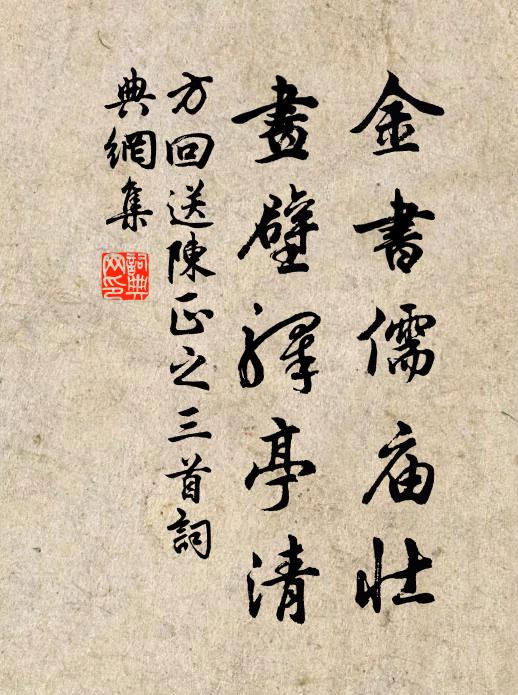 金書儒庙壯
畫壁驛亭清
方回送陳正之三首詞
典網集
詞典网印